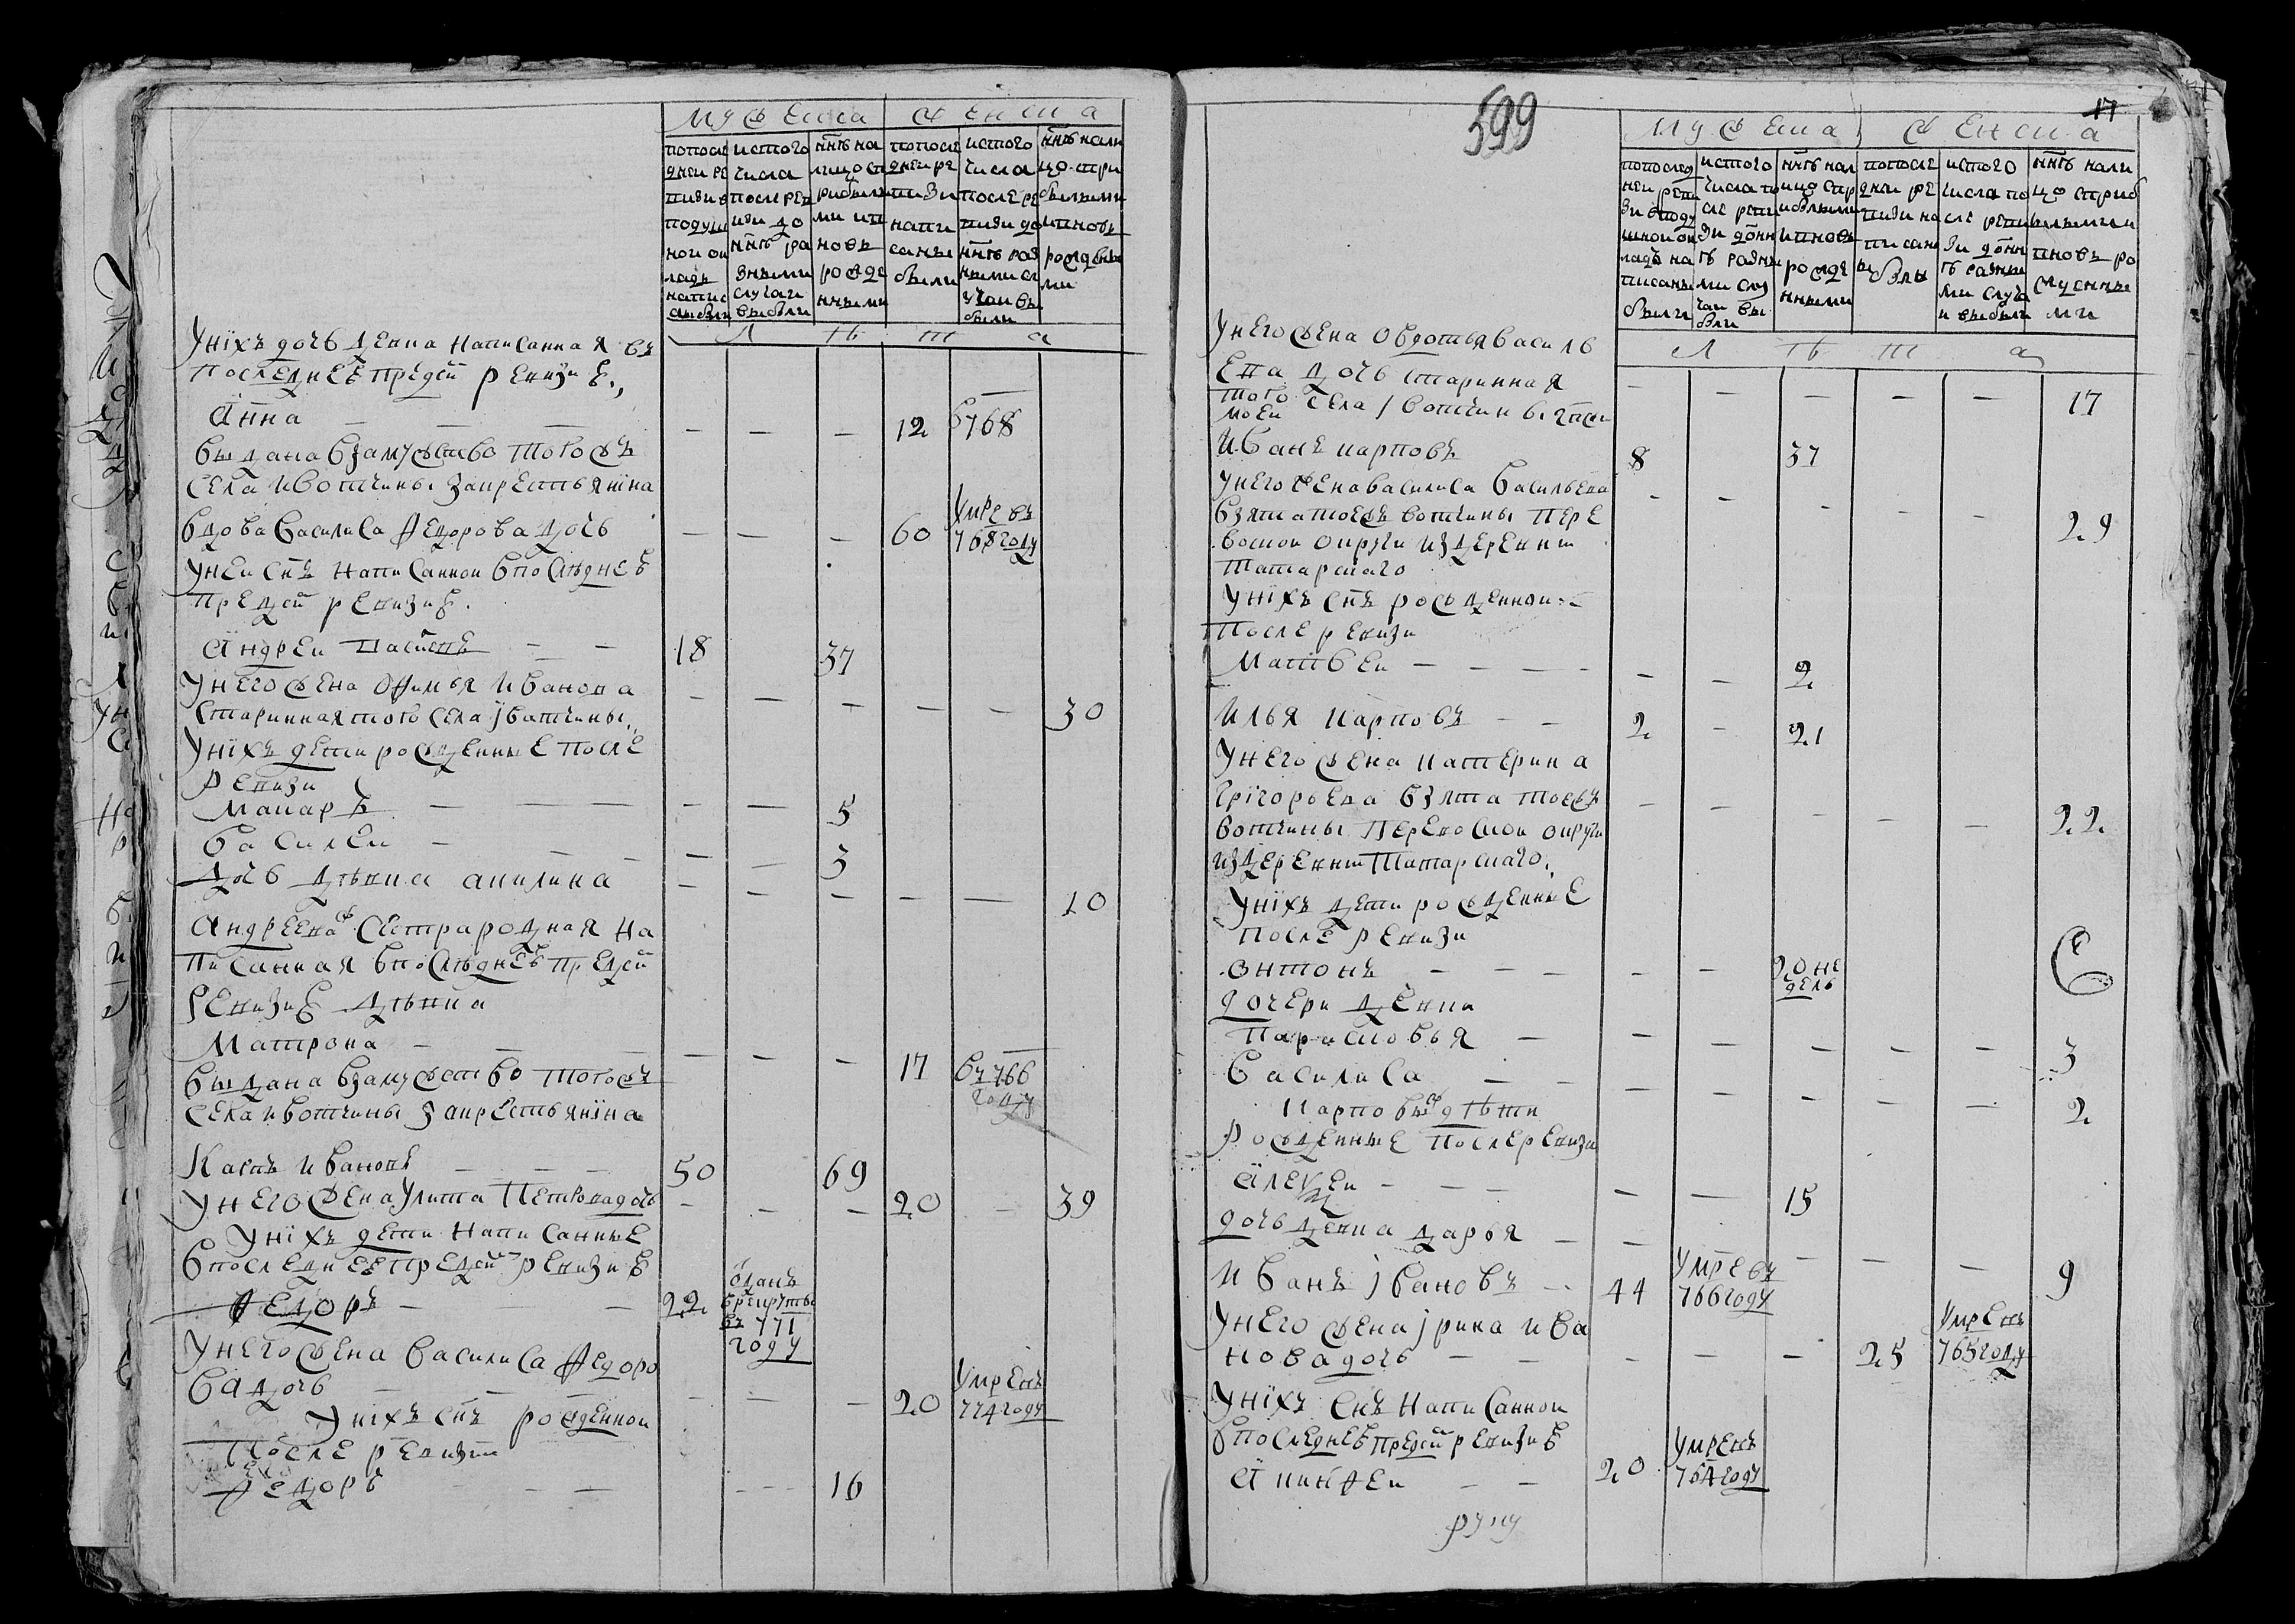 Мужеска Женска
попосле
дней ре
визи в
подуш
ной ок
ладъ
написа
аы были
истого
числа
после рев
изи до
ннѣ ра
зными
случаи
выбыли
ннѣ на
лицо сп
рибылы
ми ип
новь
рожде
нными
попосле
дней ре
визи
напи
саны
были
истого
числа
после ре
визи до
ннѣ раз
ными сл
учаи вы
были
ннѣ нали
цо спри
былыми
иновь
рожденны
ми
Л ѣ т а
Унїхъ дочь девка написанная въ
последнеѣ предъ сей ревизиѣ
Анна — — — — — — 12 в 768
выдана взамужство тогожъ
села ивотчины за крестьянїна
Вдова Василиса Ѳедорова дочь — — — 60 умре въ 768 году
уней снъ написанной впослѣднеѣ
предъ сей ревизиѣ
Андрей — — 18 37
Унего жена Офимья Иванова — — — — — 30
старинная того села івотчины
Унїхъ дети рожденные после
ревизи
Макаръ — — — — — 5
Василей — — — — — 3
дочь дѣвка Акилина — — — — — 10
Андреева ж сестра родная на
писанная впослѣднеѣ предъ сей
ревизиѣ дѣвка
Матрона — — — — — — 17 въ 766 году
выдана взамужство тогожъ
села ивотчины за крестьянїна
Ивановъ — — — 50 69
Унего жена Улита Петрова дочь — — — 20 — 39
Унїхъ дети написанные
впоследнеѣ предъ сей ревизиѣ
Ѳедоръ — — 22 отданъ врекрутъ въ 771 году
Унего жена Василиса Ѳедоро
ва дочь — — — — — — 20 умре въ 774 году
Унїхъ снъ рожденной
после ревизии
Ѳедоръ — — — — — 16
599
17
Мужеска Женска
попослед
ней реви
зи вподу
шной ок
ладъ на
писаны
были
истого
числа по
сле реви
зи до нн
ѣ разны
ми слу
чаи вы
были
ннѣ нал
ицо спр
ибылыми
ивновь
рожде
нными
попосле
дней ре
визи на
писаны
были
истого
числа по
сле реви
зи до нн
ѣ разны
ми случа
и выбыли
ннѣ нали
цо сприб
ылыми и
вновь ро
жденны
ми
Л ѣ т а
Унего жена Овдотья Василь
ева дочь старинная — — — — — 17
того моей села івотчины
Иванъ Карповъ 8 37
Унего жена Василиса Васильева — — — — — 29
взята тоежъ вотчины Пере
воской округи из деревни
Татарскаго
Унїхъ снъ рожденной
после ревизи
Матвей — — — — — — 2
Илья Карповъ — — 2 — 21
Унего жена Катерина
Григорьева взята тоежъ — — — — — 22
вотчины Перевоской округи
из деревни Татарскаго
Унїхъ дети рожденные
после ревизи
Онтонъ — — — — — 20 недель
дочери девки
Парасковья — — — — — — 3
Василиса — — — — — — — 2
Карповыж дѣти
рожденные после ревизи
Алексей — — — — — 15
дочь девка Дарья — — — — — 9
Иванъ Івановъ — 44 умре въ 766 году
Унего жена Ірина Ива
нова дочь — — — — — 25 умре въ 765 году
Унїхъ снъ написанной
впоследнеѣ предъ сей ревизиѣ
Акинѳей — — 20 умре въ 764 году
руку